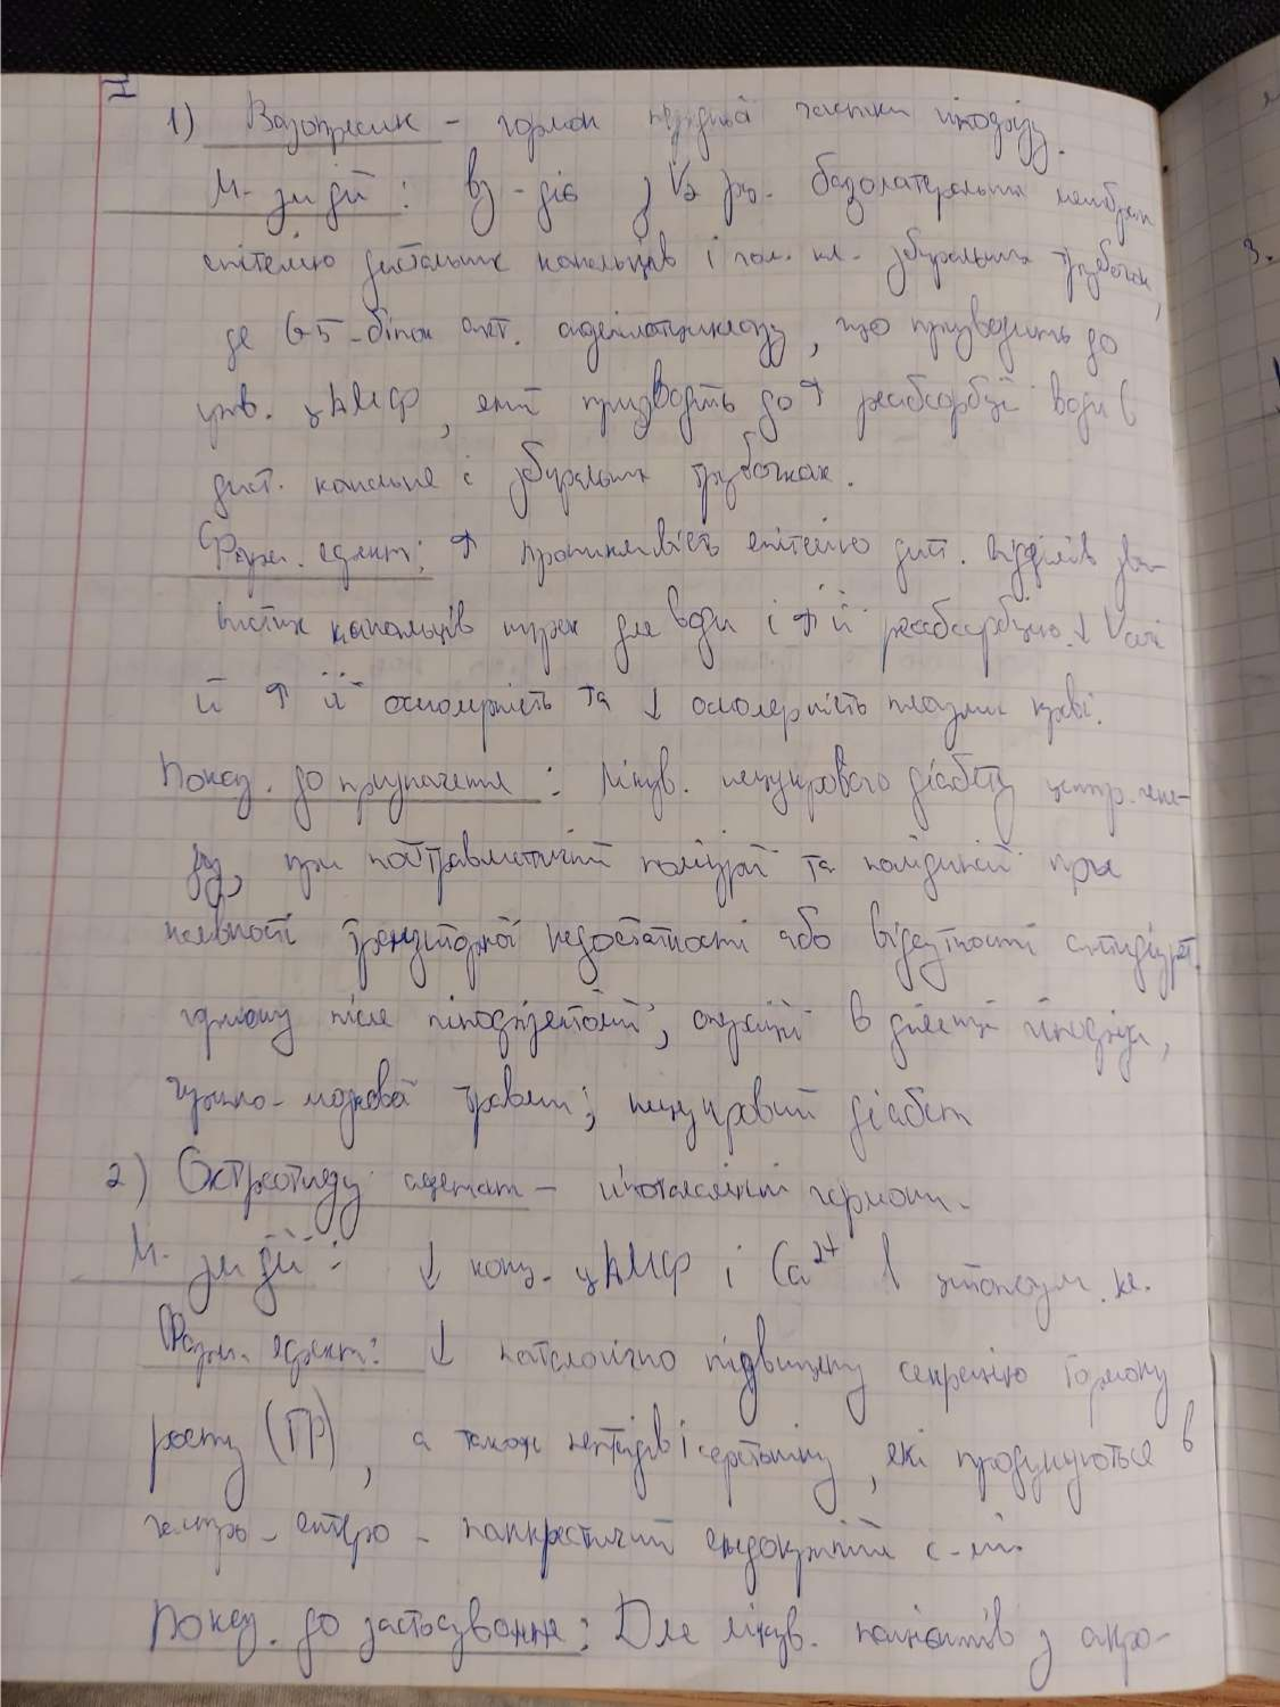 II
1) Вазопресин - гормон задньої частки гіпофізу.
М-зм дії: вз-дія з V2 рц. базолатеральних мембран
епітелію дистальних канальців і гол. кл. збиральних трубочок,
де Gs-білок акт. аденілатциклазу, що призводить до
утв. цАМФ, який призводить до ↑ реабсорбції води в
дист. канальце і збиральних трубочках.
Фарм. ефект: ↑ проникливість епітелію дист. відділів зви-
вистих канальців нирок для води і ↑ її реабсорбцію. ↓ Vсечі
й ↑ її осмолярність та ↓ осмолярність плазми крові.
Показ. до призначення: лікув. нецукрового діабету центр. гене-
зу, при посттравматичній поліурії та полідипсії при
наявності транзиторної недостатності або відсутності антидіурет.
гормону після гіпофізектомії, операцій в ділянці гіпофіза,
черепно-мозкової травми; нецукровий діабет
2) Октреотиду ацетат - гіпоталамічний гормон.
М-зм дії: ↓ конц. цАМФ і Ca2+ в цитоплазм. кл.
Фарм. ефект: ↓ патологічно підвищену секрецію гормону
росту (ГР), а також пептидів і серотоніну, які продукуються в
гастро-ентеро-панкреатичній ендокринній с-мі.
Показ. до застосування: Для лікув. пацієнтів з акро-